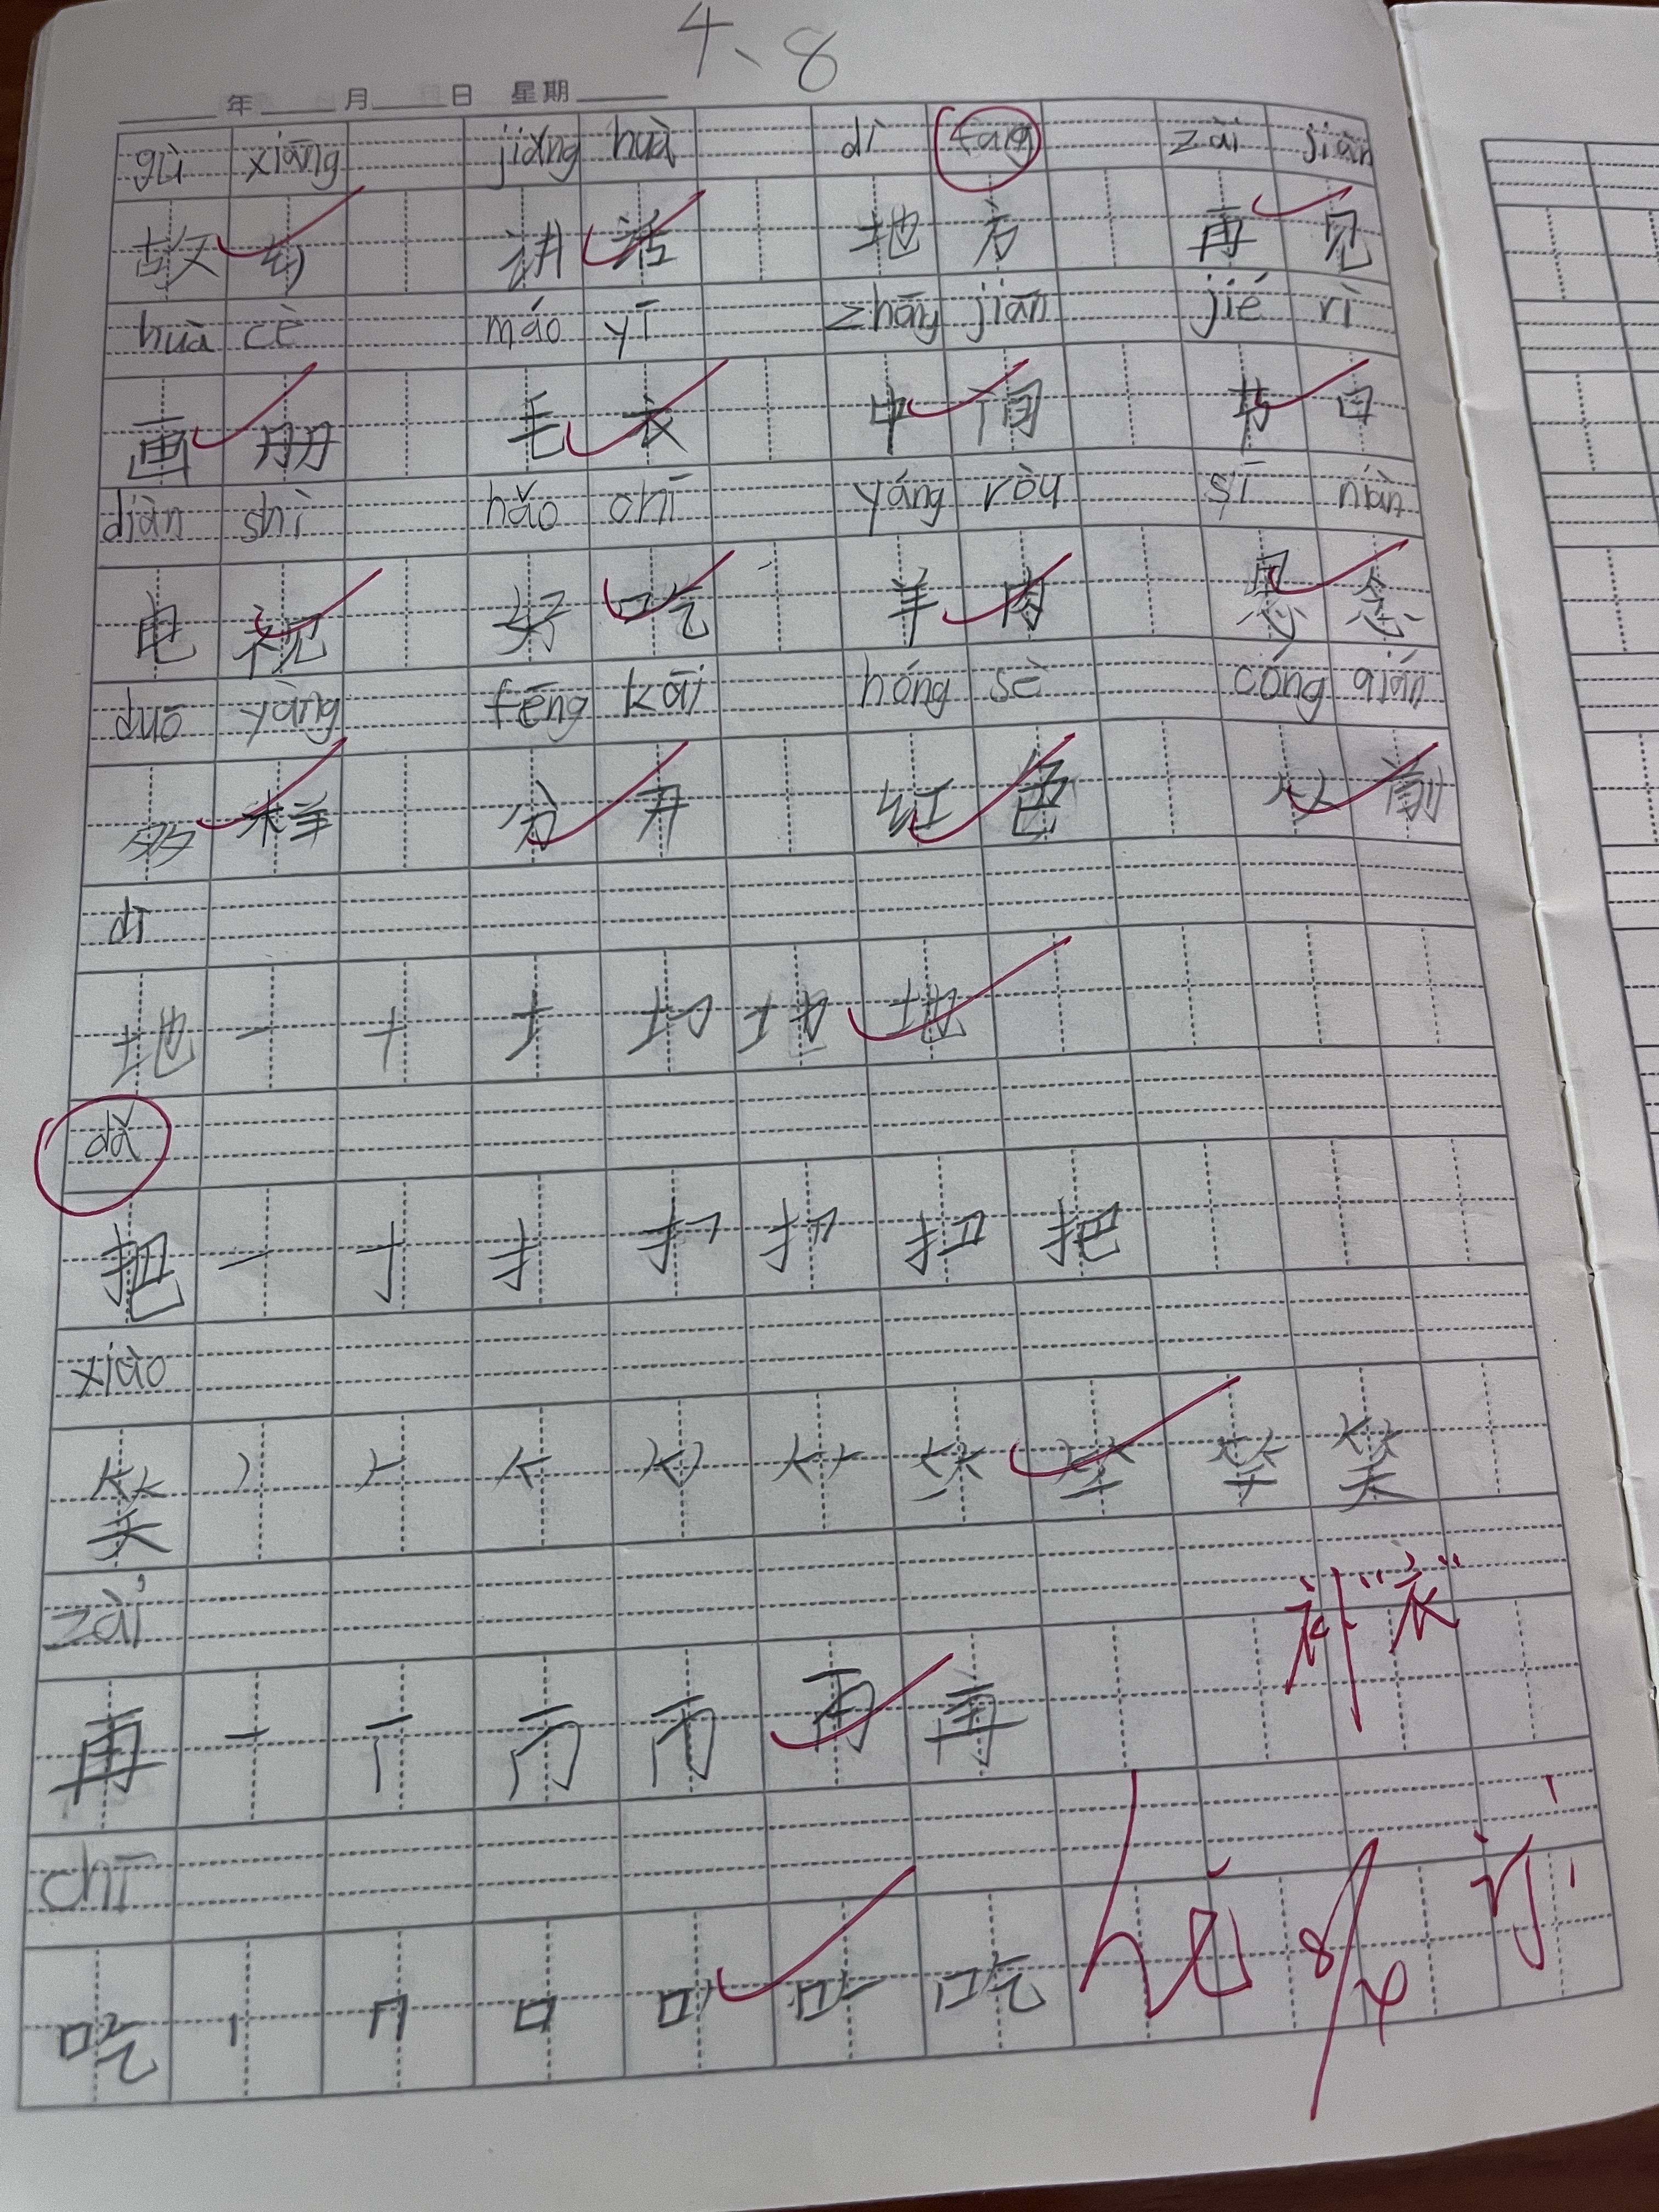 4、8
年 月 日 星期
gù xiāng jiǎng huà dì fang zài jiàn
故乡 讲话 地方 再见
huà cè máo yī zhōng jiān jié rì
画册 毛衣 中间 节日
diàn shì hǎo chī yáng ròu sī niàn
电视 好吃 羊肉 思念
duō yàng fēng kāi hóng sè cóng qián
多样 分开 红色 从前
dì
地 一 十 土 地
dǎ
把 一 十 扌 扣 把
xiào
笑 丿 𠂉 笑
zài
再 一 丆 再
chī
吃 丨 口 吃
补“衣”
8/4